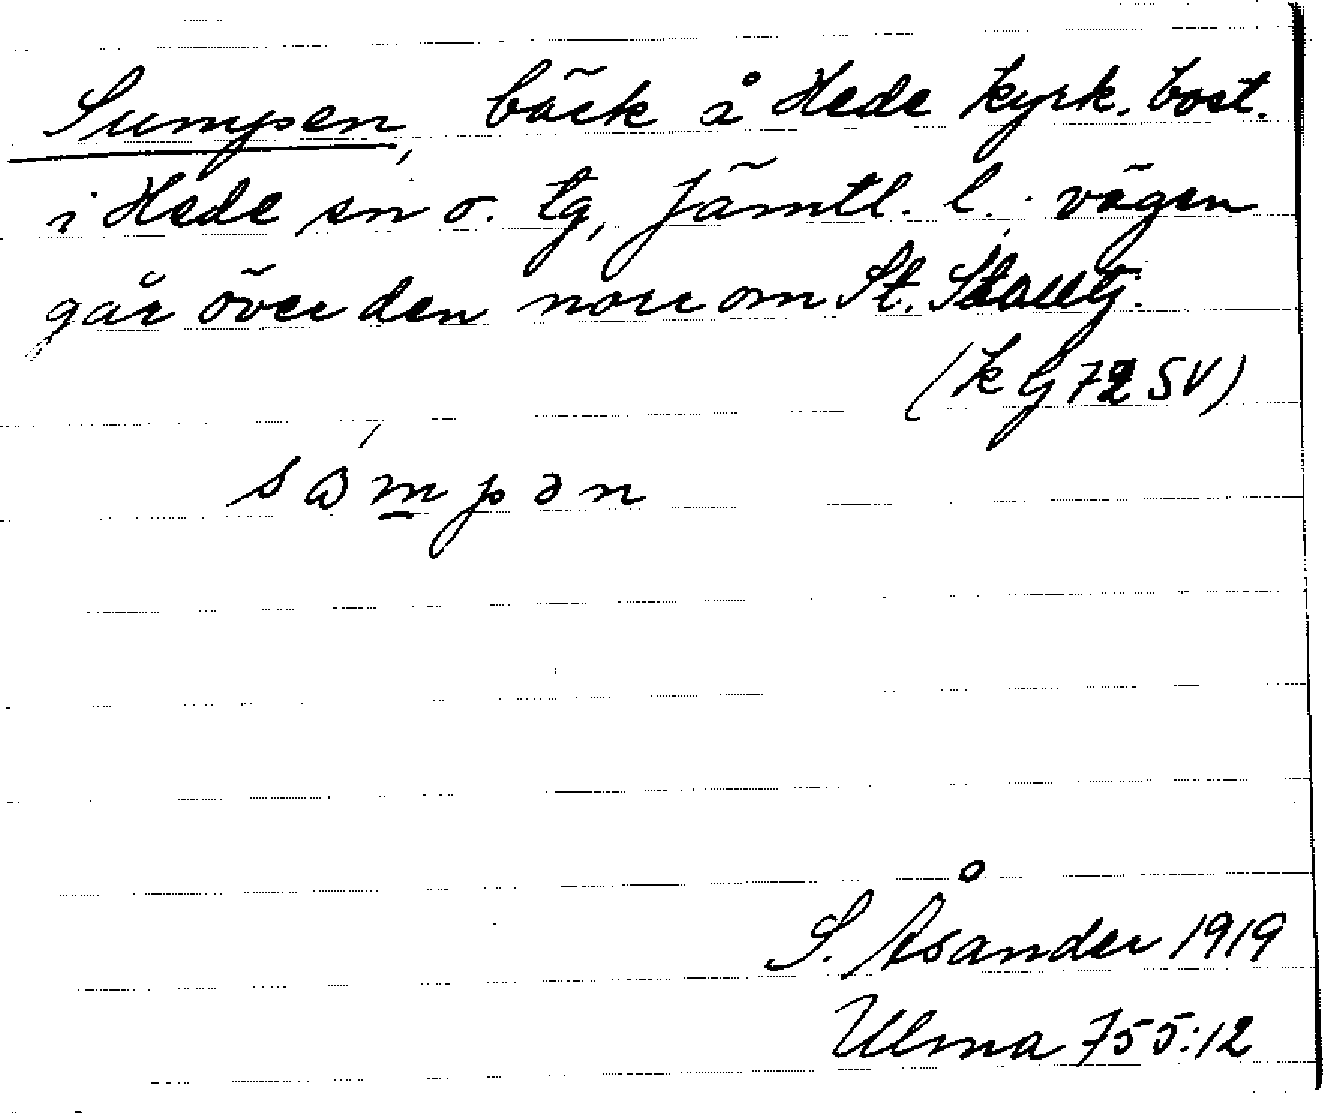 Sumpen, bäck å Hede kyrk. bost.
i Hede sn o. tg, Jämtl. l. vägen
går över den norr om St.
(k G 72 SV)
sɷmpən
S. Åsander 1919
Ulma 755:12